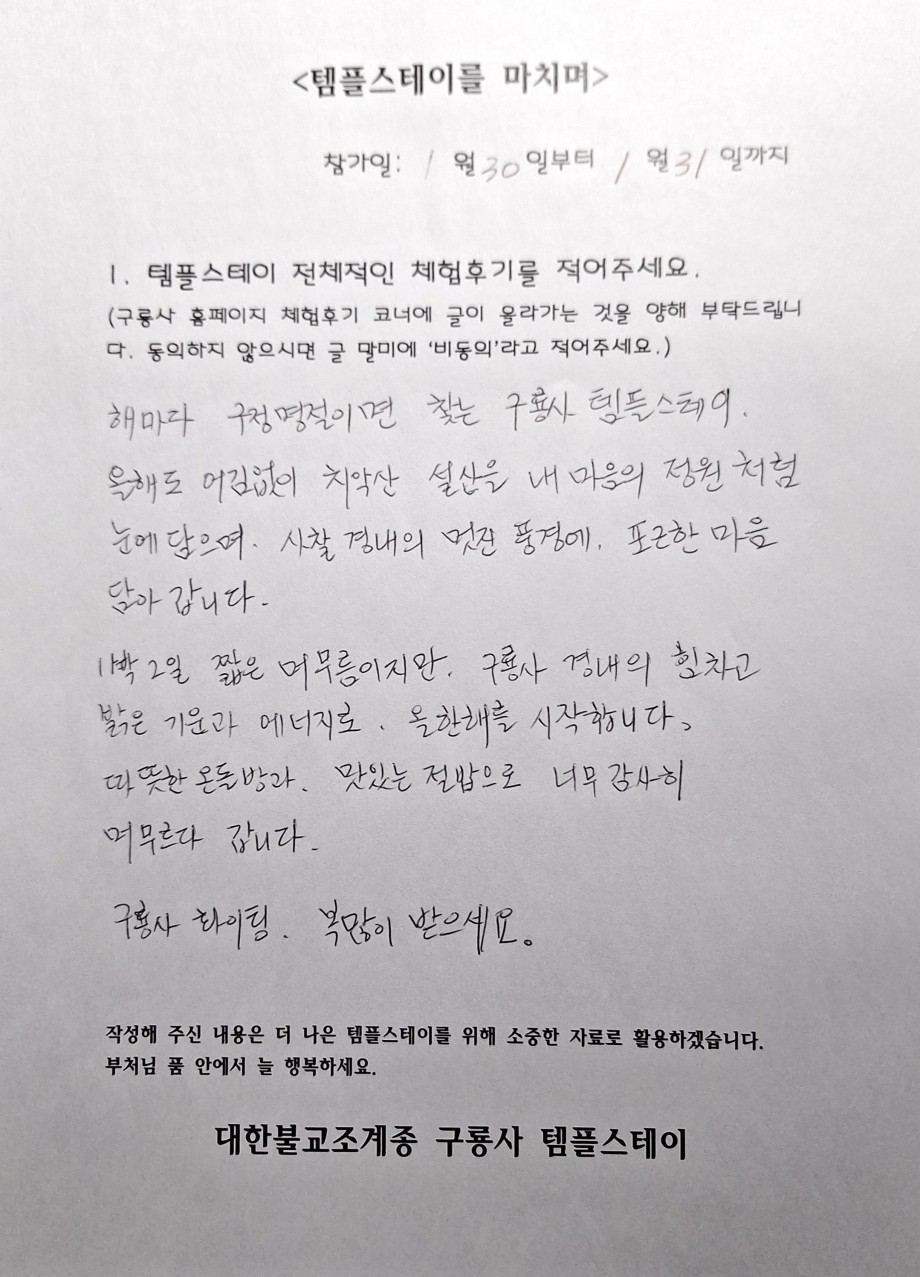 <템플스테이를 마치며>
참가일: 1 월 30 일부터 1 월 31 일까지
1. 템플스테이 전체적인 체험후기를 적어주세요.
(구룡사 홈페이지 체험후기 코너에 글이 올라가는 것을 양해 부탁드립니
다. 동의하지 않으시면 글 말미에 '비동의'라고 적어주세요.)
해마다 구정명절이면 찾는 구룡사 템플스테이.
올해도 어김없이 치악산 설산을 내 마음의 정원 처럼
눈에 담으며. 사찰 경내의 멋진 풍경에. 포근한 마음
담아 갑니다.
1박 2일 짧은 머무름이지만. 구룡사 경내의 힘차고
밝은 기운과 에너지로. 올한해를 시작합니다.
따뜻한 온돌방과. 맛있는 절밥으로 너무 감사히
머무르다 갑니다.
구룡사 화이팅. 복많이 받으세요.
작성해 주신 내용은 더 나은 템플스테이를 위해 소중한 자료로 활용하겠습니다.
부처님 품 안에서 늘 행복하세요.
대한불교조계종 구룡사 템플스테이